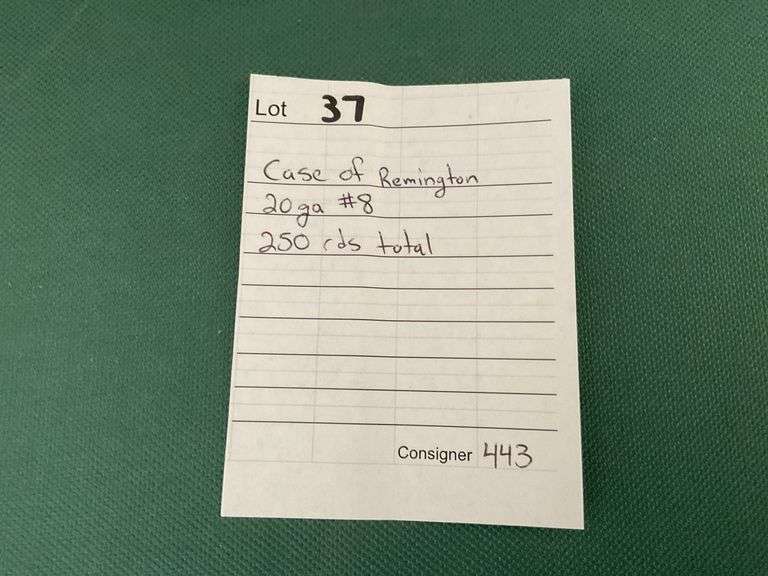 Lot 37
Case of Remington
20ga #8
250 rds total
Consigner 443